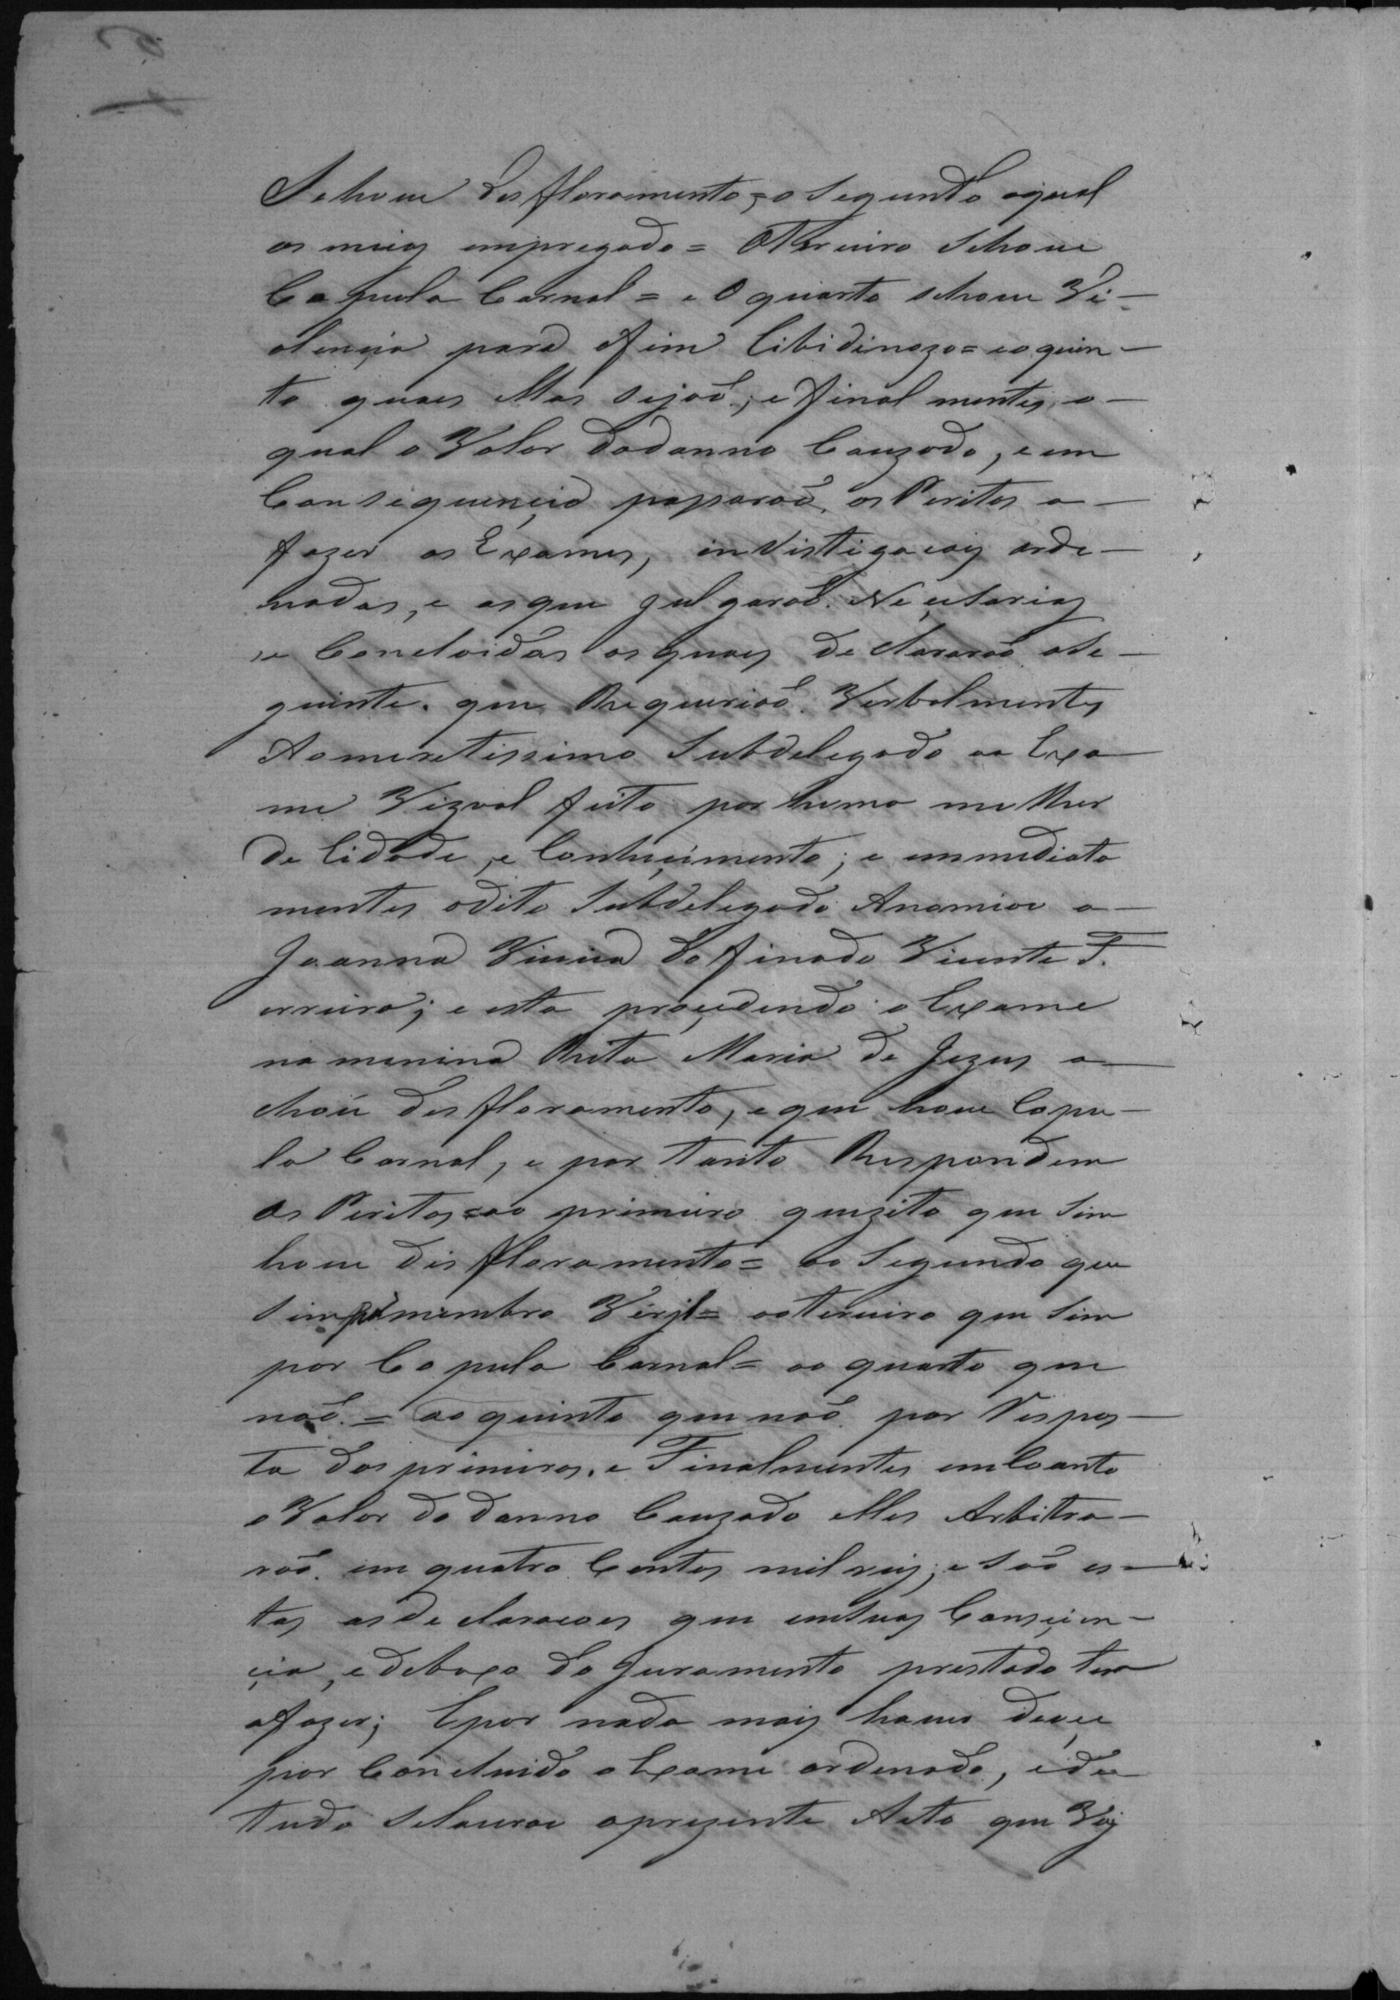 Se houve desfloramento, o segundo o qual
os meios empregado = O Terceiro se houve
Copula Carnal = e O quarto se houve Vi-
olencia para o fim libidinozo = e o quin-
to quaes ellas sejaõ; e finalmentes o
qual o Valor do danno Cauzado, e em
Consiquencia passaraõ os Peritos a
fazer os Exames, investigacois orde-
nadas, e as que julgaraõ Neçesarias
e Concluidas as quaes declararaõ o Se-
guinte. que Requeriaõ Verbalmentes
Ao meretissimo Subdelegado ao Exa
me Vizual feito por huma mulher
de Cidade, e Conheçimento; e emmediata
mentes o dito Subdelegado Anomiou a
Joanna Viuva do finado Vicente F.
erreira; e esta proçedendo o Exame
na menina Rita Maria de Jezus a
chou desfloramento, e que houve Copu-
la Carnal, e por tanto Respondem
os Peritos = ao primeiro quezito que sim
houve disfloramento = ao Segundo que
sim pelo membro Viril = ao terceiro que sim
por Copula Carnal = ao quarto que
naõ. = ao quinto que naõ por Respos-
ta dos primeiros. e Finalmentes em Coanto
o Valor do danno Cauzado elles Arbitra-
raõ em quatro Centos mil reis; e Saõ es-
tas as declaracoes que em suas Consçien-
çia, e debaxo do Juramento prestado tem
a fazer; E por nada mais haver deu se
por Concluido o Exame ordenado, e de
tudo Se lavrou o prezente Auto que Vai